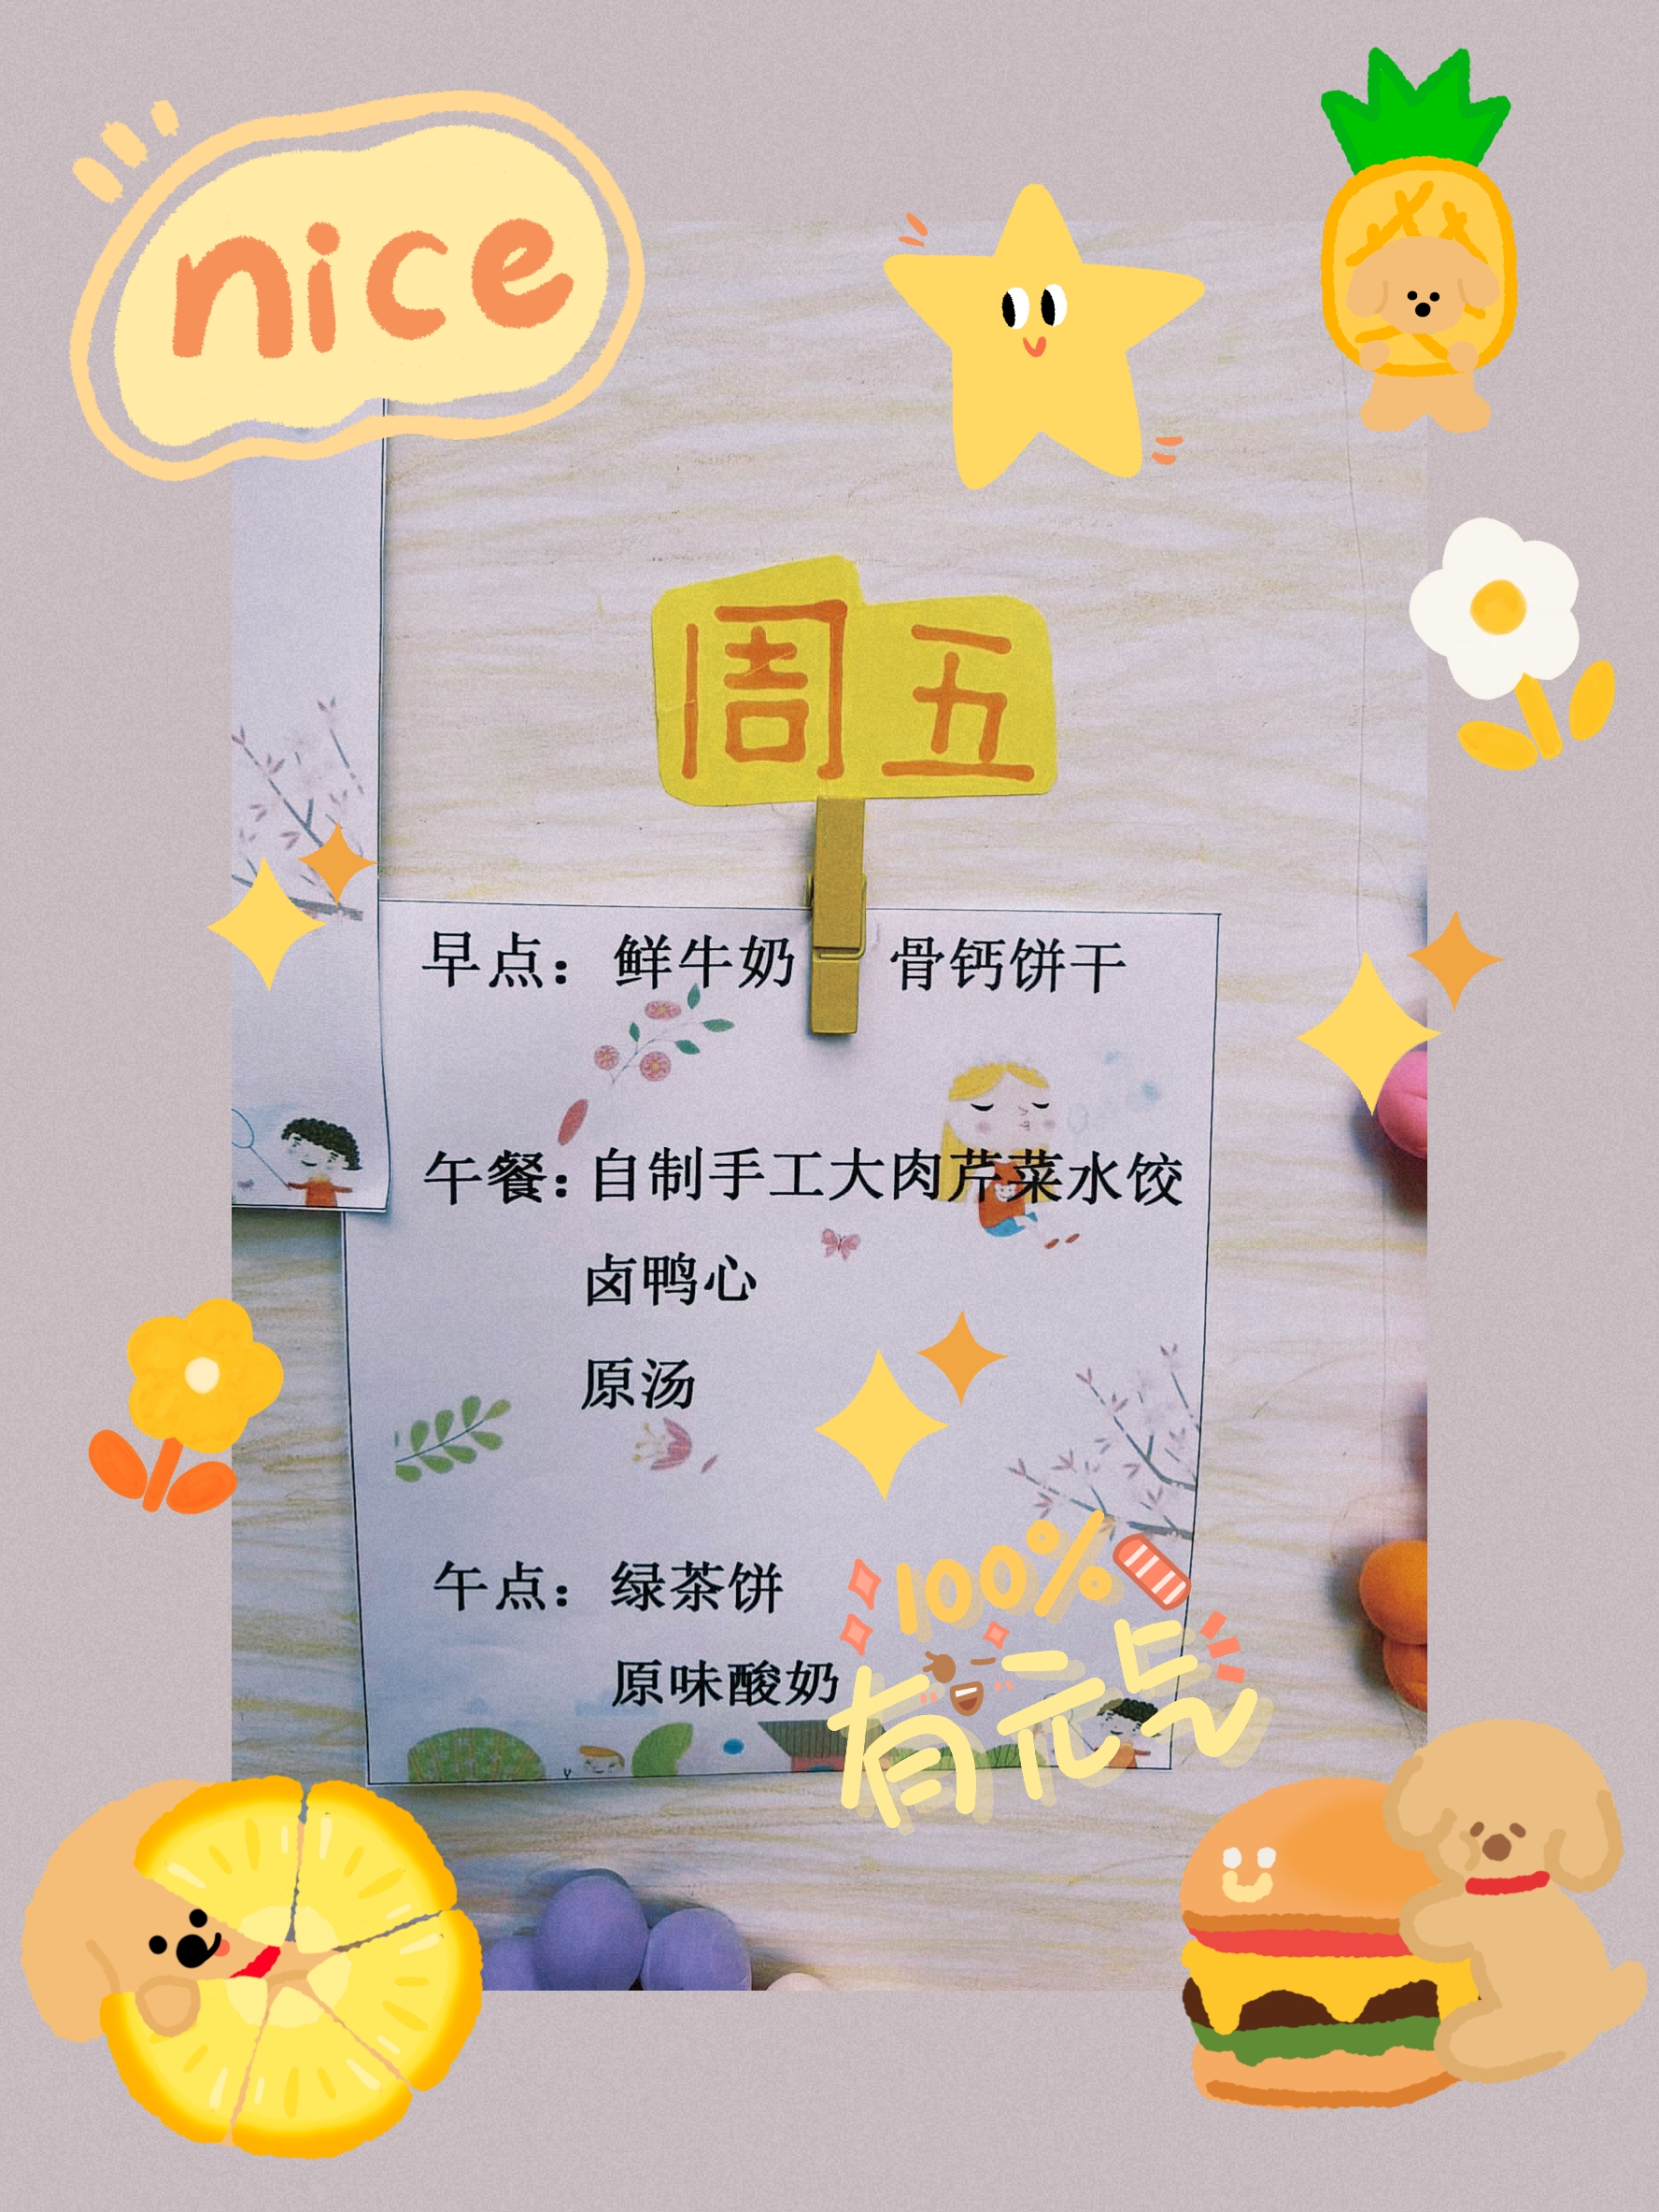 nice
周五
早点：鲜牛奶 骨钙饼干
午餐：自制手工大肉芹菜水饺
卤鸭心
原汤
午点：绿茶饼
原味酸奶
100%
有元气